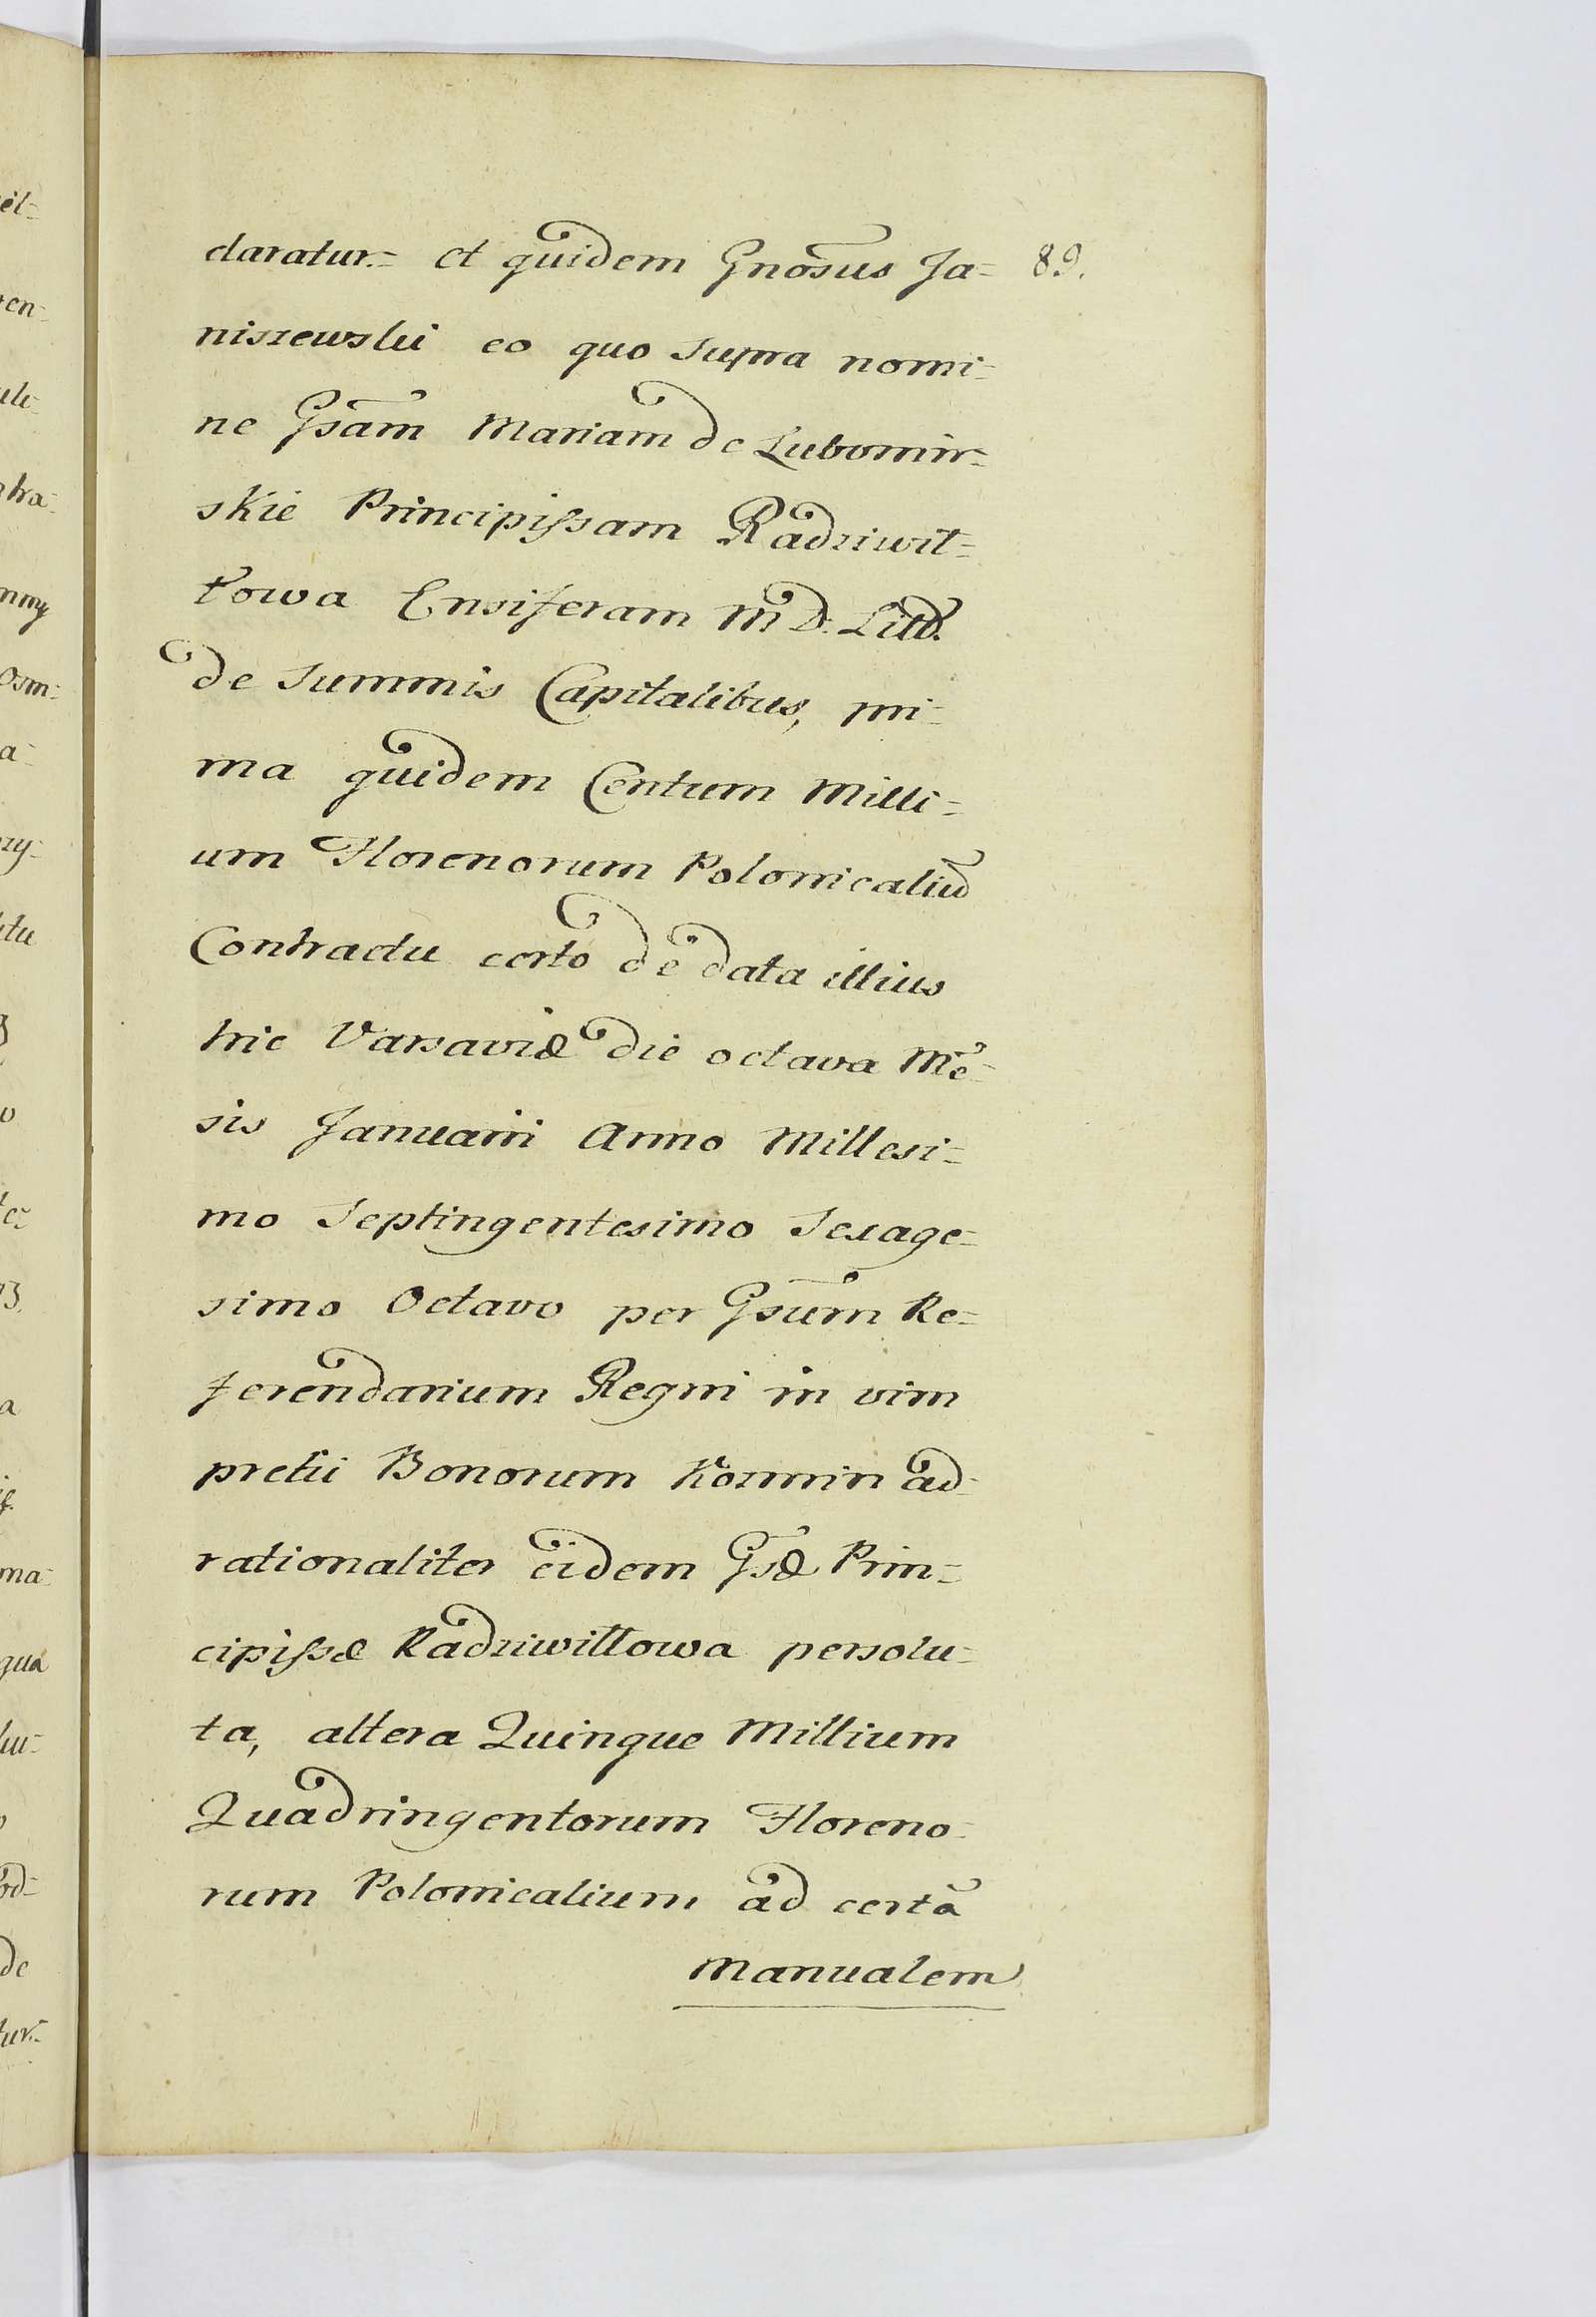 daratur.= et quidem Gnosus Ja= 89.
niszewski eo quo supra nomi=
ne Gsam Mariam de Lubomir=
skie Principissam Radziwił=
łowa Ensiferam M D. Litt.
de Summis Capitalibus, pri=
ma quidem Centum Milli=
um Florenorum Polonicaliū
Contractu certo de data illius
hic Varsaviæ die octava Mē=
sis Januarii Anno Millesi=
mo Septingentesimo Sexage=
simo Octavo per Gsum Re=
ferendarium Regni in vim
pretii Bonorum Kozmin ad=
rationaliter eidem Gsæ Prin=
cipissæ Radziwiłłowa persolu=
ta, altera Quinque Millium
Quadringentorum Floreno=
rum Polonicalium ad certā
Manualem